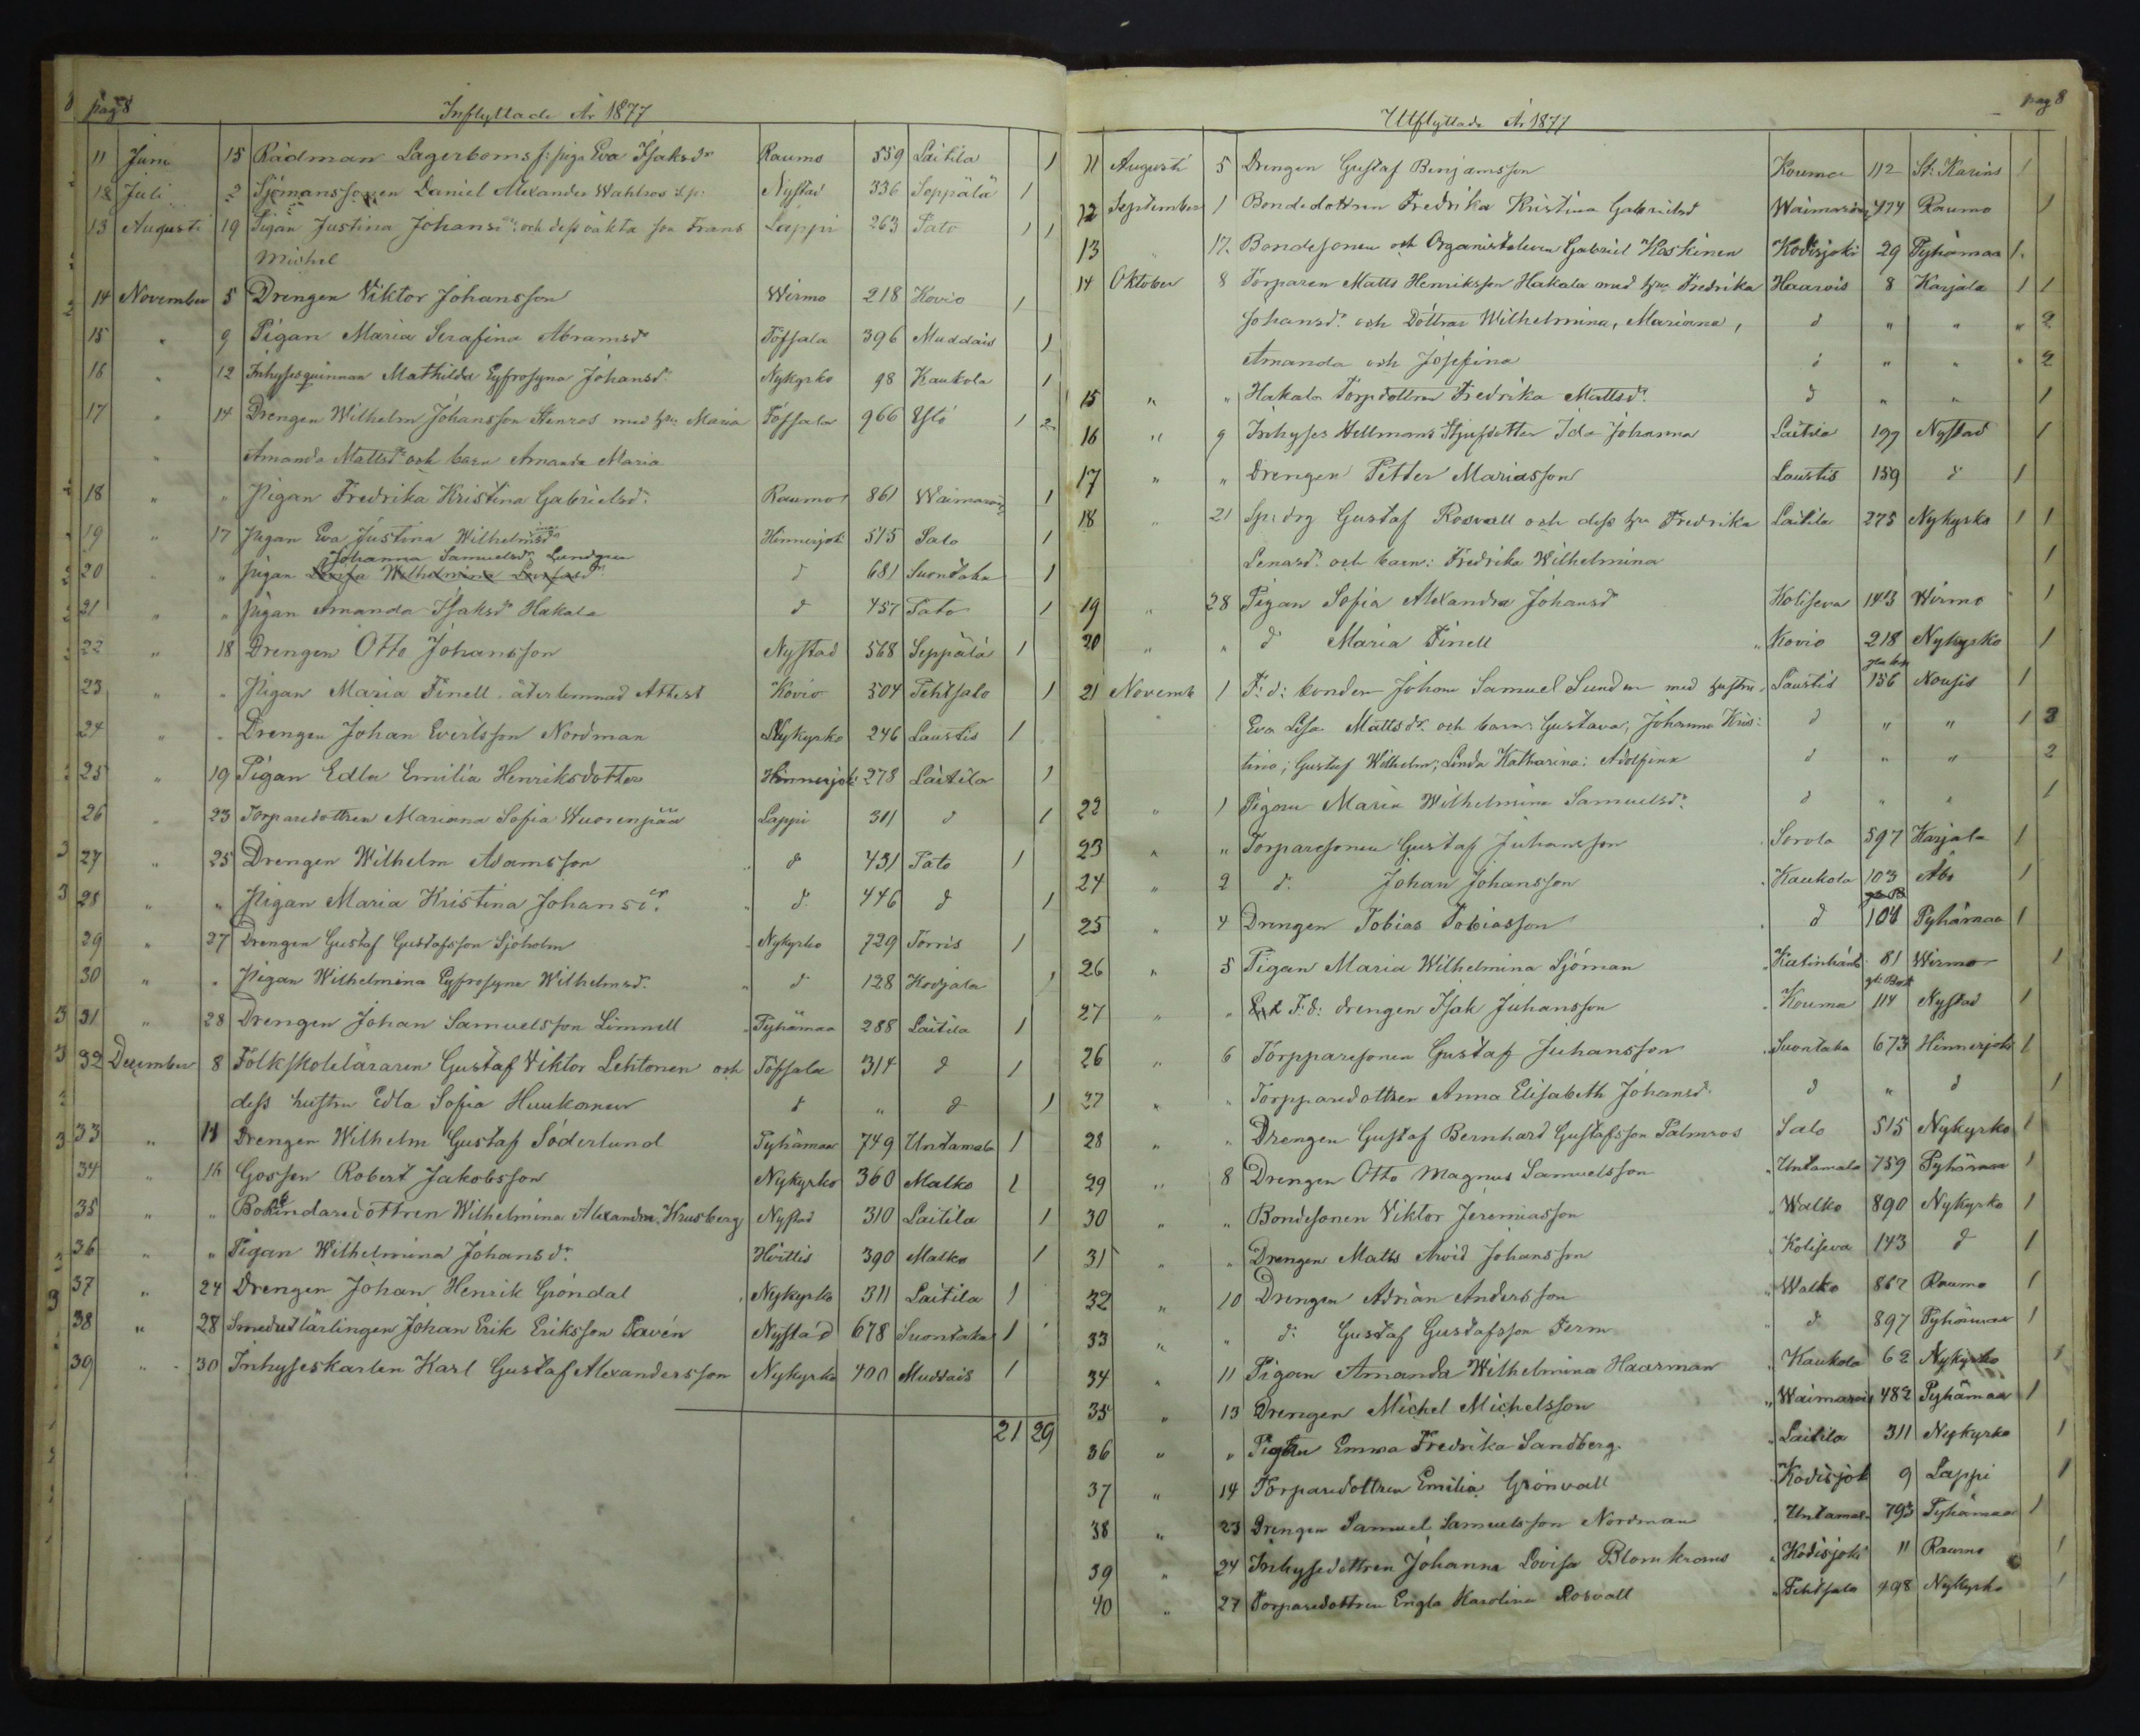 pag 8
Inflyttade År 1877
11 Juni 15 Rådman Lagerboms f: piga Eva Isaksdr Raumo 559 Laitila 1
12 Juli 2 Sjömanssonen Daniel Alexander Wahlros Nystad 336 Seppälä 1
13 Augusti 19 Pigan Justina Johansdr och dess oäkta son Frans Lappi 263 Pato 1 1
Michel
14 November 5 Drengen Viktor Johansson Wirmo 218 Kovio 1
15 " 9 Pigan Maria Serafina Abramsdr Töfsala 396 Muddais 1
16 " 12 Inhysesqvinnan Mathilda Eyfrosyna Johansdr Nykyrko 98 Kaukola 1
17 " 14 Drengen Wilhelm Johansson Stenros med hru Maria Töfsala 966 1 2
" Amanda Mattsdr och barn Amanda Maria
18 " " Pigan Fredrika Kristina Gabrielsdr Raumo 861 Waimaro 1
19 " 17 Pigan Eva Justina Wilhelmsdr Hinnerjok 515 Salo 1
Johanna Samuelsdr Lundgren
20 " " Pigan Lovisa Wilhelmina d 681 Suontaka 1
21 " " Pigan Amanda Isaksdr Hakala d 457 Pato 1
22 " 18 Drengen Otto Johansson Nystad 568 Seppälä 1
23 " " Pigan Maria Finell återlemnad Attest Kovio 504 Tehtsalo 1
24 " " Drengen Johan Evertsson Nordman Nykyrko 246 Laustis 1
25 " 19 Pigan Edla Emilia Henriksdotter Hinnerjoki 278 Laitila 1
26 " 23 Torparedottren Mariana Sofia Wuorenpää Lappi 311 d 1
27 " 25 Drengen Wilhelm Adamsson d 431 Pato 1
28 " " Pigan Maria Kristina Johansdr d 446 d 1
29 " 27 Drengen Gustaf Gustafsson Sjöholm Nykyrko 729 Torris 1
30 " " Pigan Wilhelmina Eyfrosyna Wilhelmsdr d 128 Kodjala 1
31 " 28 Drengen Johan Samuelsson Limnell Pyhämaa 288 Laitila 1
32 December 8 Folkskoleläraren Gustaf Viktor Lehtonen och Töfsala 314 d 1
dess hustru Edla Sofia Huukanen d " d 1
33 " 11 Drengen Wilhelm Gustaf Söderlund Pyhämaa 749 Untamala 1
34 " 16 Gossen Robert Jakobsson Nykyrko 360 Malko 1
35 " " Bokbindaredottren Wilhelmina Alexandra Wrusberg Nystad 310 Laitila 1
36 " " Pigan Wilhelmina Johansdr Hvittis 390 Malko 1
37 " 24 Drengen Johan Henrik Gröndal Nykyrko 311 Laitila 1
38 " 28 Smedslärlingen Johan Erik Eriksson Pavén Nystad 678 Suontaka 1
39 " 30 Inhyseskarlen Karl Gustaf Alexandersson Nykyrko 400 Muddais 1
21 29
pag 8
Utflyttade År 1877
11 Augusti 5 Drengen Gustaf Benjamsson Kouma 112 St: Karins 1
12 September 1 Bondedottren Fredrika Kristina Gabrielsd Waimaro 474 Raumo 1
13 " 17 Bondesonen och Organisteleven Gabriel Koskinen Kodisjoki 29 Pyhämaa 1
14 Oktober 8 Torparen Matts Henriksson Hakala med hru Fredrika Haarois 8 Karjala 1 1
Johansdr och Döttrar Wilhelmina, Mariana, d " " " 2
Amanda och Josefina d " " " 2
15 " " Hakala Torpdottren Fredrika Mattsdr d " " 1
16 " 9 Inhyses Hellmans Styfdotter Ida Johanna Laitila 199 Nystad 1
17 " " Drengen Petter Mariasson Laustis 159 d 1
18 " 21 Sp: drg Gustaf Rosvall och dess hru Fredrika Laitila 275 Nykyrko 1 1
Lenasdr och barn: Fredrika Wilhelmina 1
19 " 28 Pigan Sofia Alexandra Johansdr Koliseva 143 Wirmo 1
20 " " d Maria Finell Kovio 218 Nykyrko 1
21 Novemb 1 F: d: bonden Johan Samuel Sunden med hustru Laustis 156 Nousis 1
Eva Lisa Mattsdr och barn: Gustava, Johanna Kris: d " " 1 3
tina; Gustaf Wilhelm; Linda Katharina; Adolfina d " " 2
22 " 1 Pigan Maria Wilhelmina Samuelsdr d " " 1
23 " " Torparesonen Gustaf Juhansson Sorola 597 Karjala 1
24 " 2 d: Johan Johansson Kaukola 103 Åbo 1
25 " 4 Drengen Tobias Tobiasson d 104 Pyhämaa 1
26 " 5 Pigan Maria Wilhelmina Sjöman 81 Wirmo 1
27 " " F: d: drengen Isak Juhansson Kouma 114 Nystad 1
26 " 6 Torpparesonen Gustaf Juhansson Suontaka 673 Hinnerjoki 1
27 " " Torpparedottren Anna Elisabeth Johansd d " d 1
28 " " Drengen Gustaf Bernhard Gustafsson Palmros Salo 515 Nykyrko 1
29 " 8 Drengen Otto Magnus Samuelsson Untamala 759 Pyhämaa 1
30 " " Bondesonen Viktor Jeremiasson Walko 890 Nykyrko 1
31 " " Drengen Matts Arvid Johansson Koliseva 143 d 1
32 " 10 Drengen Adrian Andersson Walko 867 Raumo 1
33 " " d: Gustaf Gustafsson Term d 897 Pyhämaa 1
34 " 11 Pigan Amanda Wilhelmina Haarman Kaukola 62 Nykyrko 1
35 " 13 Drengen Michel Michelsson Waimaro 482 Pyhämaa 1
36 " " Pigan Emma Fredrika Sandberg Laitila 311 Nykyrko 1
37 " 14 Torparedottren Emilia Grönvall Kodisjok 9 Lappi 1
38 " 23 Drengen Samuel Samuelsson Nordman Untamal 793 Pyhämaa 1
39 " 24 Inhysedottren Johanna Lovisa Blomkroms Kodisjoki 11 Raumo 1
40 " 27 Torparedottren Engla Karolina Rosvall Tehtsalo 498 Nykyrko 1